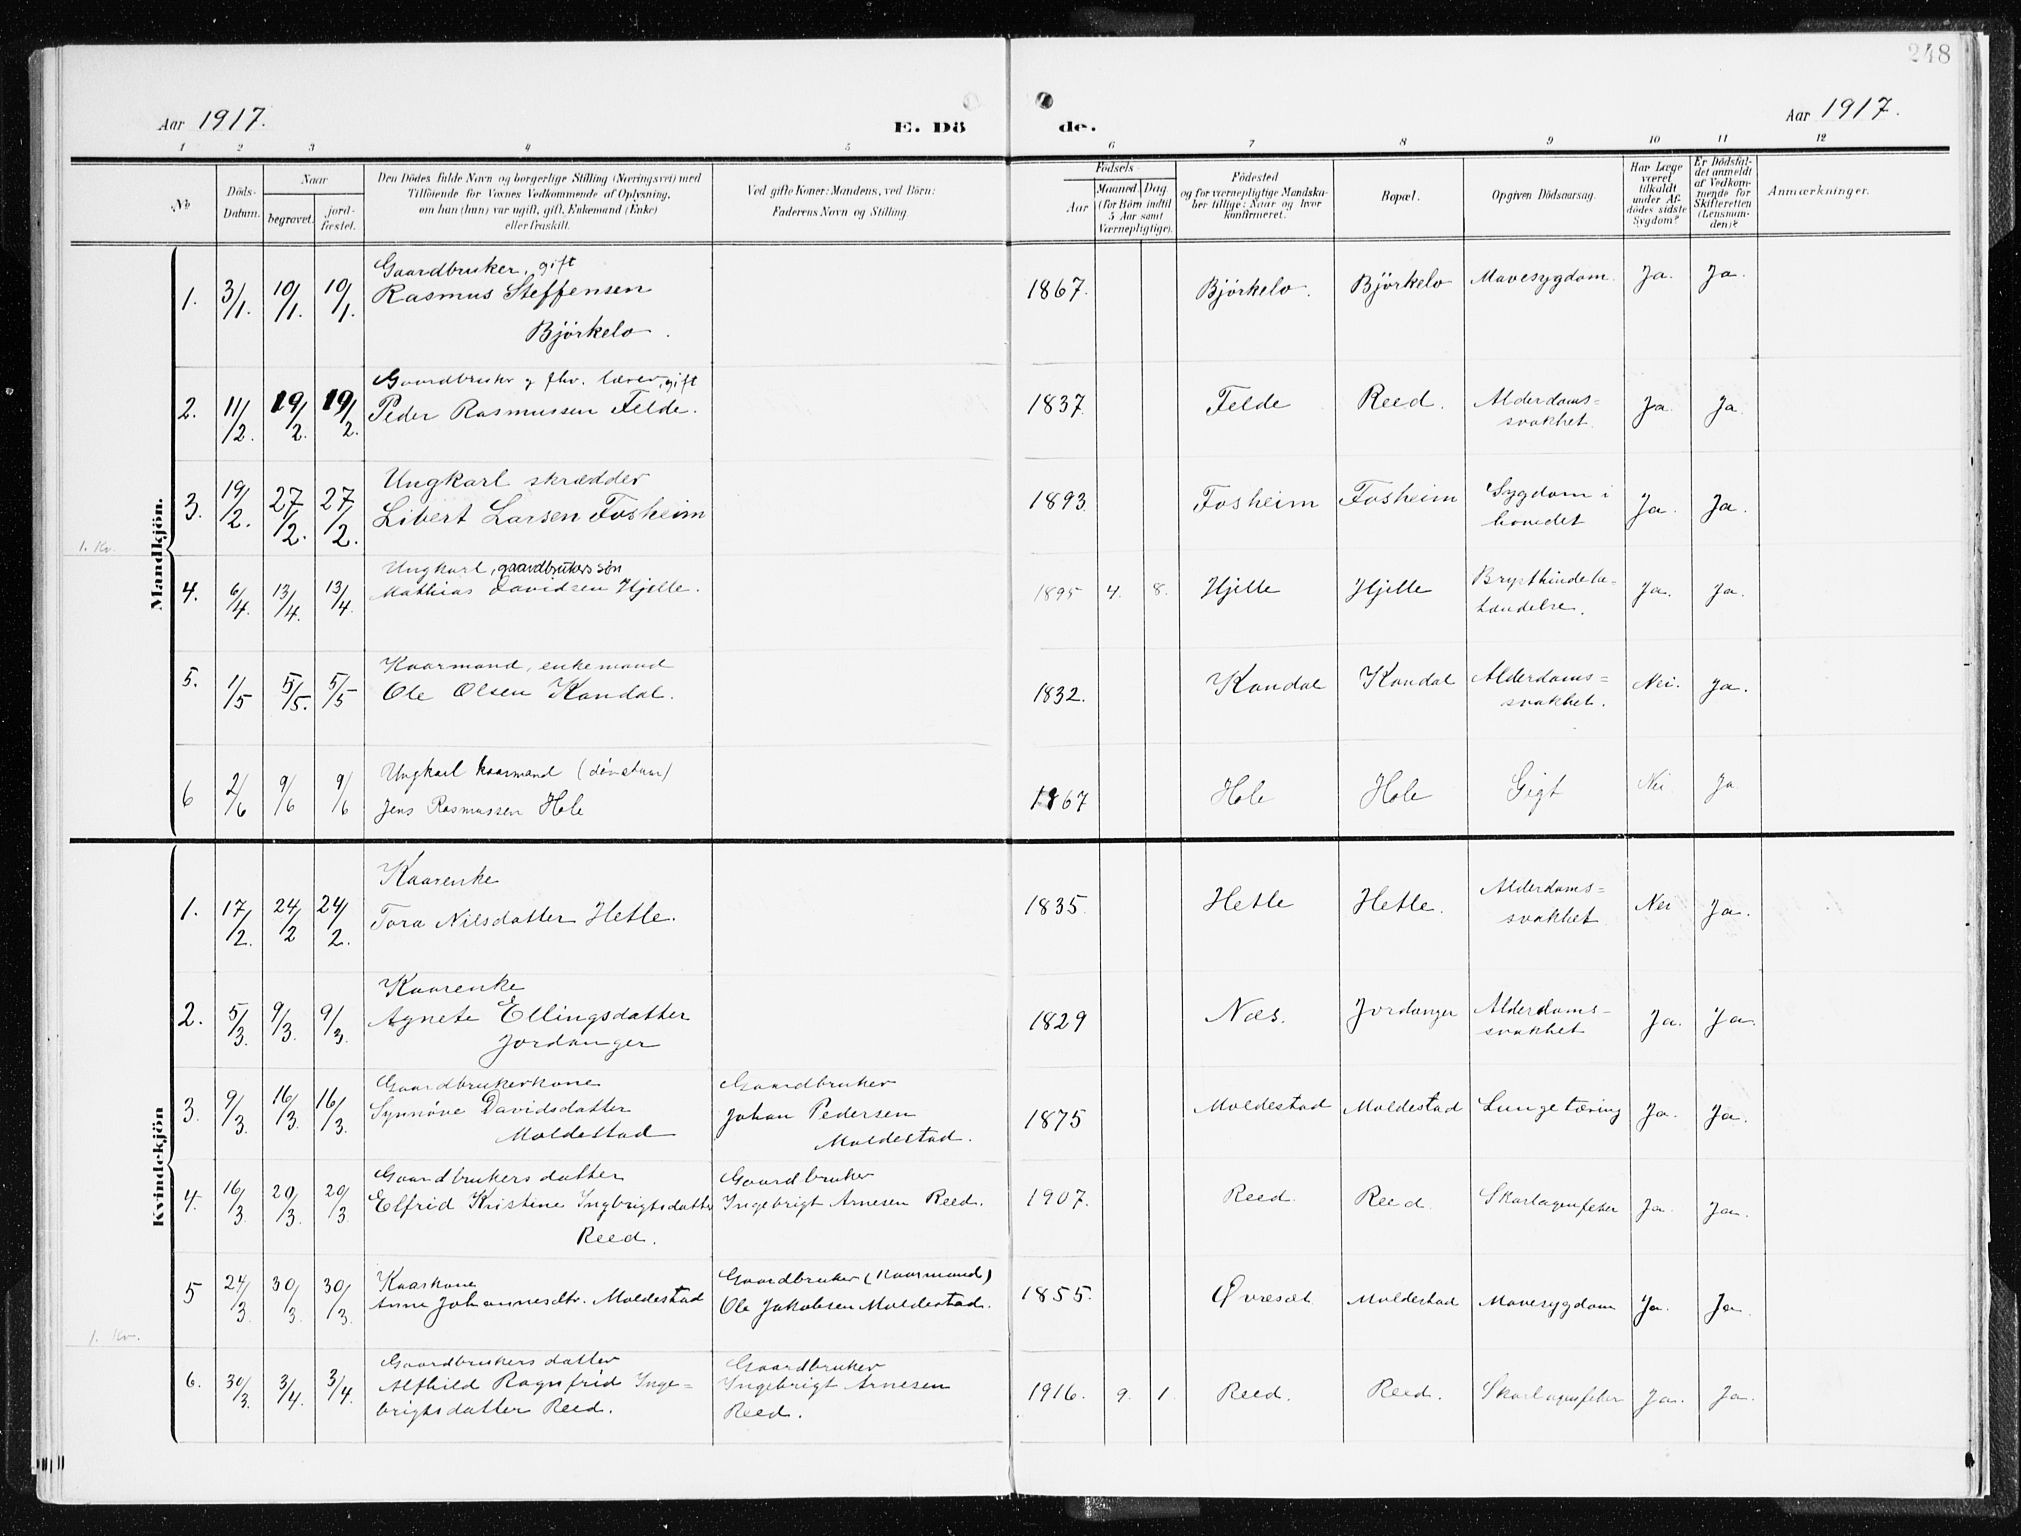 248
Aar 1917.
E. Dö
de.
Aar 1917.
1 2 3 4 5 6 7 8 9 10 11 12
No
Döds-
Datum.
Naar
begravet.
jord-
fæstet.
Den Dödes fulde Navn og borgerlige Stilling (Næringsvei) med
Tilföiende for Voxnes Vedkommende af Oplysning,
om han (hun) var ugift, gift, Enkemand (Enke)
eller fraskilt.
Ved gifte Koner: Mandens, ved Börn:
Faderens Navn og Stilling.
Födsels-
Aar
Maaned Dag
(for Börn indtil
5 Aar samt
Værnepligtige).
Födested
og for værnepligtige Mandska-
ber tillige: Naar og hvor
konfirmeret.
Bopæl.
Opgiven Dödsaarsag.
Har Læge
været
tilkaldt
under Af-
dödes sidste
Sygdom?
Er Dödsfal-
det anmeldt
af Vedkom-
mende for
Skifteretten
(Lensman-
den)?
Anmærkninger.
Mandkjön.
Gaardbruker, gift
1. 3/1. 10/1. 10/1. Rasmus Steffensen 1867. Björkelo. Björkelo Mavesygdom. Ja. Ja.
Björkelo.
Gaardbruker g fhv. lærer, gift
2. 11/2. 19/2. 19/2. Peder Rasmussen Felde. 1837. Felde Reed. Alderdoms=
svakhet. Ja. Ja.
Ungkarl skrædder
3. 19/2. 27/2. 27/2. Libert Larsen Fosheim 1893 Fosheim Fosheim Sygdom i
hovedet Ja. Ja.
1. Kv.
Ungkarl, gaardbrukers søn
4. 6/4. 13/4. 13/4. Mathias Davidsen Hjelle. 1895 4. 8. Hjelle Hjelle Brysthindebe-
tændelse. Ja. Ja.
Kaarmand, enkemand
5. 1/5 5/5. 5/5 Ole Olsen Kandal. 1832. Kandal Kandal Alderdoms=
svakhet. Nei. Ja.
Ungkarl kaarmand (døvstum)
6 2/6 9/6 9/6 Jens Rasmussen Hole 1867 Hole Hole Gigt Nei Ja
Kvindekjön
Kaarenke
1. 17/2. 24/2 24/2. Tora Nilsdatter Hetle. 1835. Hetle Hetle. Alderdoms=
svakhet Nei Ja.
Kaarenke
2. 5/3. 9/3. 9/3. Agnete Ellingsdatter 1829 Næs. Jordanger Alderdoms-
svakhet Ja. Ja.
Jordanger
Gaardbrukerkone Gaardbruker
3. 9/3. 16/3. 16/3. Synnöve Davidsdatter Johan Pedersen 1875 Moldestad Moldestad Lungetæring Ja. Ja.
Moldestad Moldestad.
Gaardbrukersdatter Gaardbruker
4. 16/3 20/3. 20/3. Elfrid Kristine Ingbrigtsdatter Ingebrigt Arnesen Reed. 1907. Reed. Reed. Skarlagensfeber Ja. Ja.
Reed.
Kaarkone Gaardbruker (Kaarmand)
5 24/3 30/3. 30/3. Anne Johannesdtr. Moldestad Ole Jakobsen Moldestad. 1855. Øvresæt Moldestad Mavesygdom Ja. Ja.
1. Kv.
Gaardbrukersdatter Gaardbruker
6. 30/3. 3/4. 3/4. Alfhild Ragnfrid Inge= Ingebrigt Arnesen 1916. 9. 1. Reed. Reed. Skarlagensfeber Ja. Ja.
brigtsdatter Reed. Reed.